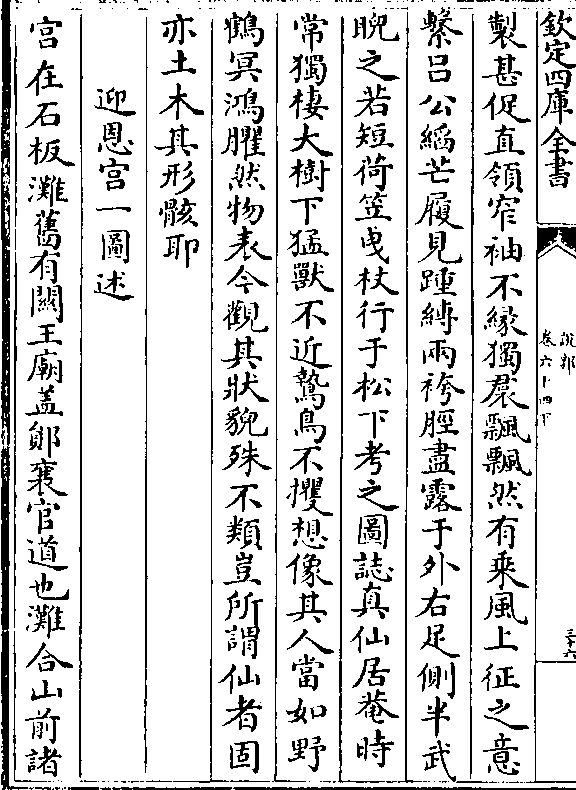 欽定四庫全書
說郛
卷六十四下
三十六
製甚促直領窄袖不緣獨裙飄飄然有乘風上征之意
繫呂公縚芒屨見踵縛兩袴脛盡露于外右足側半武
睨之若短荷笠曵杖行于松下考之圖誌真仙居菴時
常獨棲大樹下猛獸不近鷙鳥不攫想像其人當如野
鶴冥鴻臞然物表今觀其狀貌殊不類豈所謂仙者固
亦土木其形骸耶
迎恩宫一圖述
宫在石板灘舊有關王廟蓋鄖襄官道也灘合山前諸